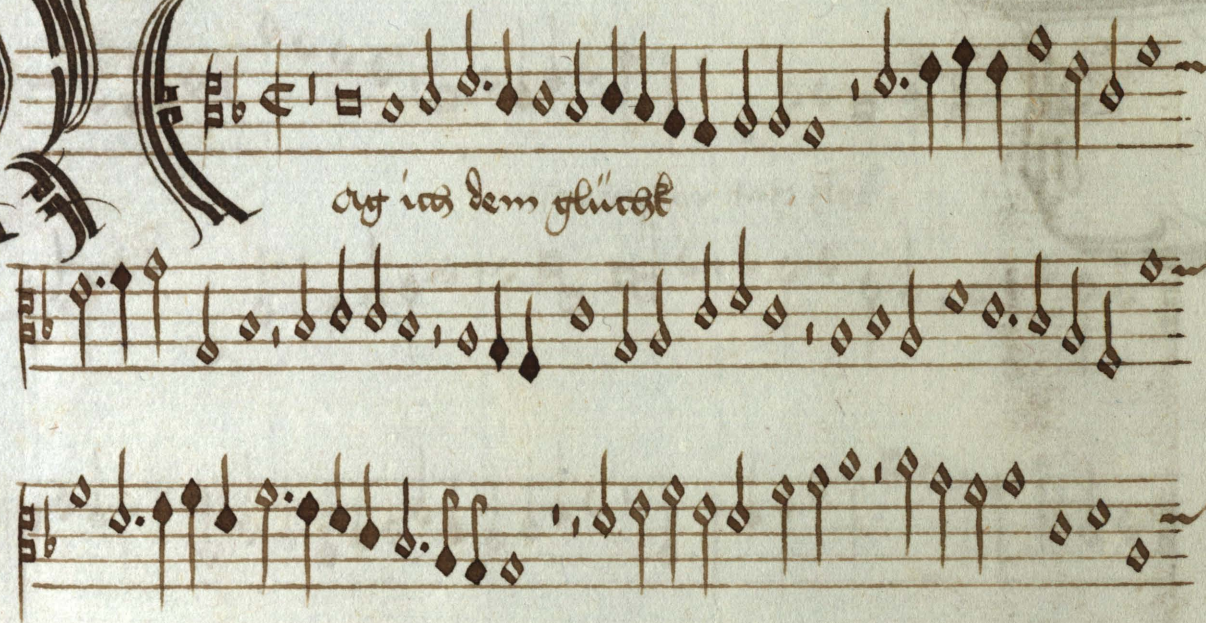 ag ich dem glückh